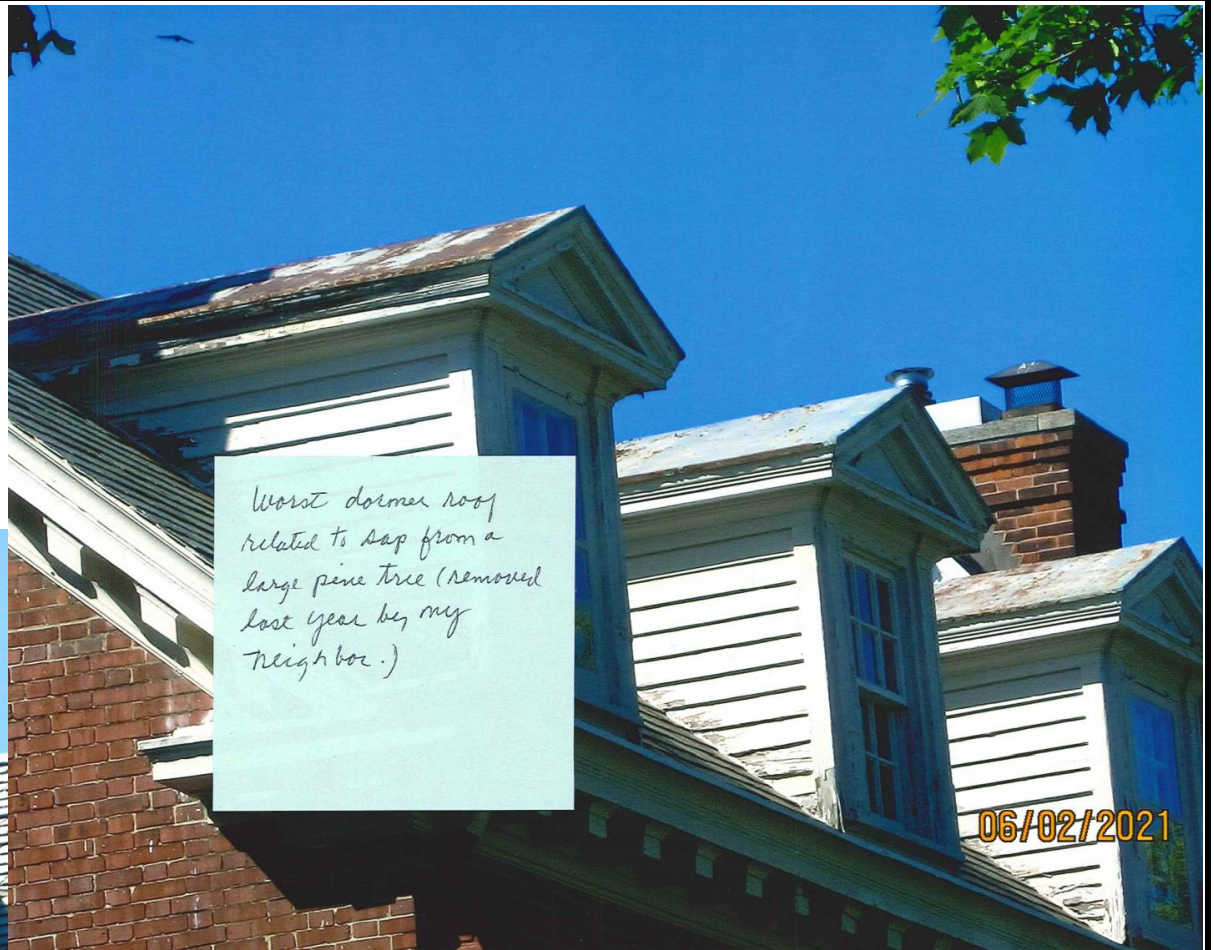 Worst dormer roof
related to sap from a
large pine tree (removed
last year by my
neighbor.)
06/02/2021